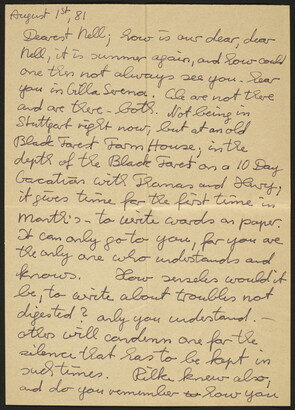 August 1st, 81
Dearest Nell; how is our dear, dear
Nell, it is summer again, and how could
one then not always see you - hear
you in Villa Serena. We are not there
and are there - both. Not being in
Stuttgart right now, but at an old
Black Forest Farm House; in the
depth of the Black Forest on a 10 Day
Vacation with Thomas and
it gives time for the first time in
month's - to write words on paper.
It can only go to you, for you are
the only one who understands and
knows. How senseless would it
be, to write about troubles not
digested? only you understand. -
others will condemn one for the
silence that has to be kept in
such times. Rilke knew also,
and do you remember how you